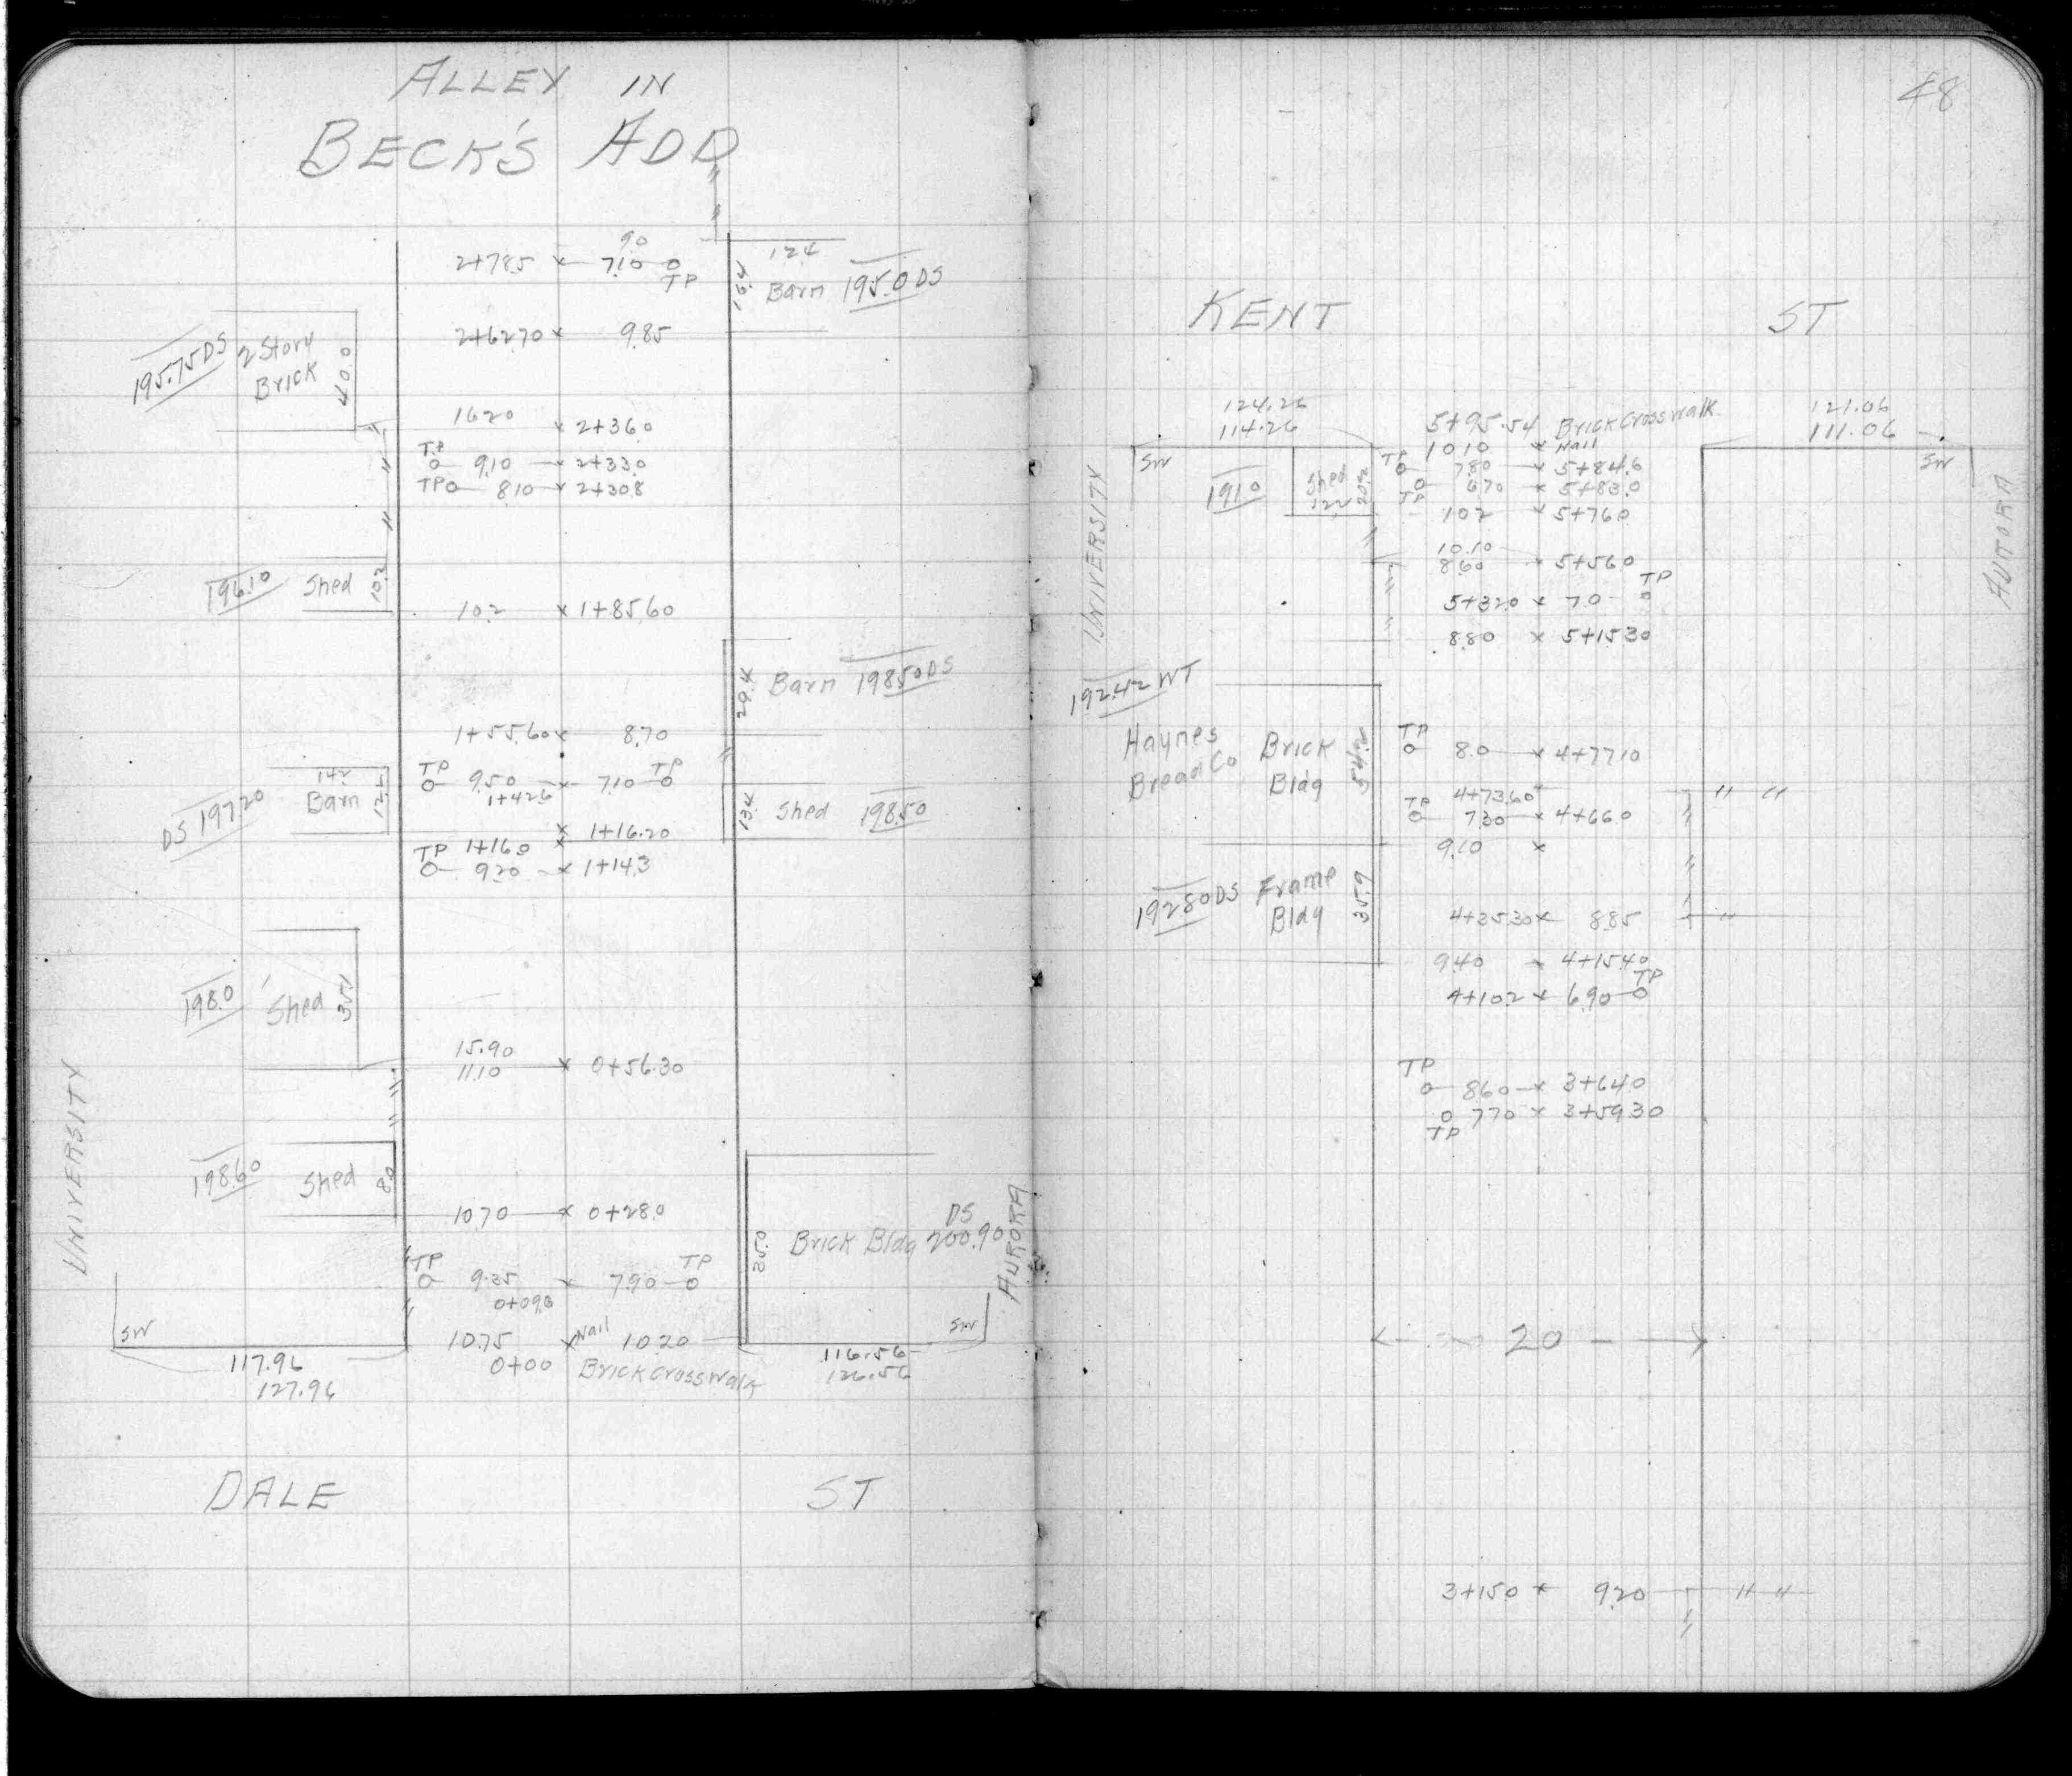 ALLEY IN
BECK'S ADD
90
2+78.5 x 7.10 o
TP
12.4
16.4
Barn 195.0 DS
2+62.70 x 9.85
195.75 DS
2 Story
Brick
40.0
16.20
x 2+36.0
TP
o 9.10 x 2+33.0
TP o 8.10 x 2+30.8
196.10
Shed
10.2
10.2 x 1+85.60
29.4
Barn 198.50 DS
1+55.60 x 8.70
TP TP
o 9.50 x 7.10 o
1+42.6
DS 197.20
Barn
13.4
Shed 198.50
x 1+16.20
1+16.0 x
TP
o 9.20 x 1+14.3
198.0
Shed
35.1
15.90
11.10 x 0+56.30
UNIVERSITY
198.60
Shed
8.0
10.70 x 0+28.0
DS
Brick Bldg 200.90
35.0
AURORA
TP TP
o 9.35 x 7.90 o
0+09.6
SW
10.75 x Nail 10.20
SW
0+00 Brick Crosswalk
117.96
127.96
116.56
126.56
DALE ST
48
KENT ST
124.26
114.26
5+95.54 Brick Crosswalk
121.06
111.06
10.10 x Nail
SW
SW
UNIVERSITY
AURORA
191.0
Shed
12.2
20.2
TP
o 7.80 x 5+84.6
o 6.70 x 5+83.0
TP
10.2 x 5+76.0
10.10
8.60 x 5+56.0
TP
5+32.0 x 7.0 o
8.80 x 5+15.30
192.42 WT
Haynes
Bread Co
Brick
Bldg
54.2
TP
o 8.0 x 4+77.10
4+73.60
TP
o 7.30 x 4+66.0
" "
9.10 x
192.80 DS
Frame
Bldg
35.9
4+35.30 x 8.85 "
9.40 x 4+15.40
TP
4+10.2 x 6.90 o
TP
o 8.60 x 3+64.0
o 7.70 x 3+59.30
TP
20
3+15.0 x 9.20 " "